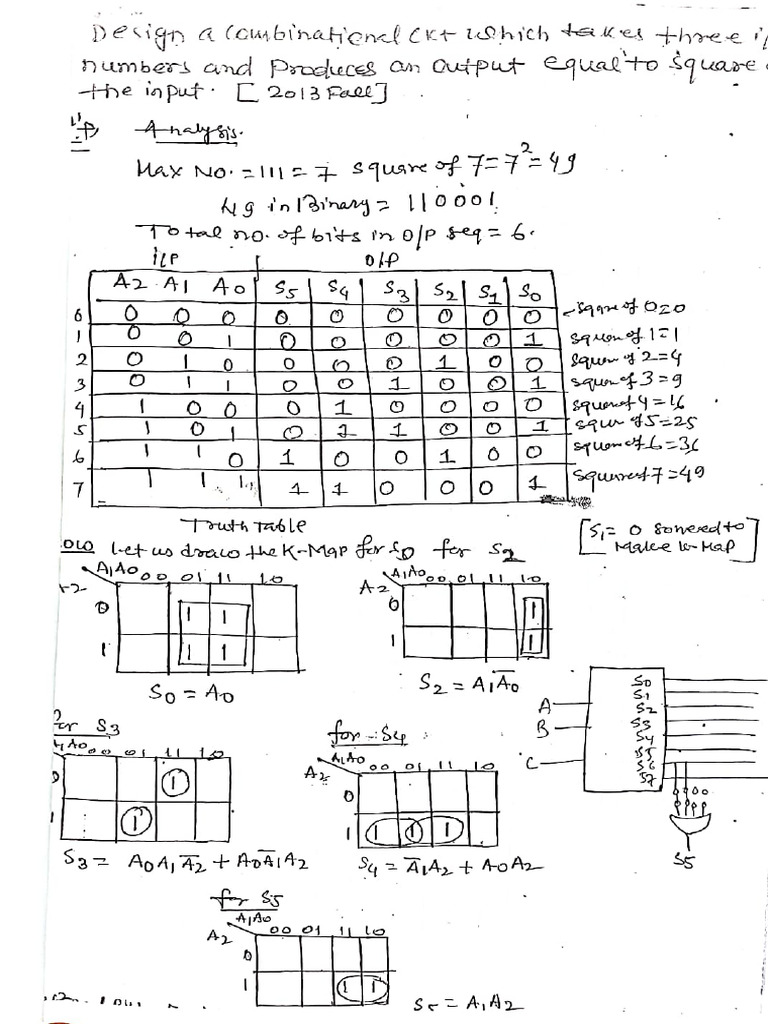 Design a combinational ckt which takes three i/
numbers and produces an output equal to square
the input. [2013 Fall]
Analysis.
Max No. = 111 = 7 square of 7 = 7² = 49
49 in Binary = 110001
Total no. of bits in O/P seq = 6.
i/P O/P
A2 A1 A0 S5 S4 S3 S2 S1 S0
0 0 0 0 0 0 0 0 0 0 square of 0=0
1 0 0 1 0 0 0 0 0 1 square of 1=1
2 0 1 0 0 0 0 1 0 0 square of 2=4
3 0 1 1 0 0 1 0 0 1 square of 3=9
4 1 0 0 0 1 0 0 0 0 square of 4=16
5 1 0 1 0 1 1 0 0 1 squr of 5=25
6 1 1 0 1 0 0 1 0 0 square of 6=36
7 1 1 1 1 1 0 0 0 1 square of 7=49
Truth table
[S1 = 0 so need to
Make K-Map]
Let us draw the K-Map for S0 for S2
A1A0 00 01 11 10
0 1 1
1 1 1
S0 = A0
A1A0 00 01 11 10
A2
0 1
1 1
S2 = A1A̅0̅
for S3
A0 00 01 11 10
1
1 1
S3 = A0A1A̅2̅ + A0A̅1̅A2
for S4
A1A0 00 01 11 10
A2
0
1 1 1 1
S4 = A̅1̅A2 + A0A2
A
B
C
S0
S1
S2
S3
S4
S5
S6
S7
S5
for S5
A1A0
A2 00 01 11 10
0
1 1 1
S5 = A1A2